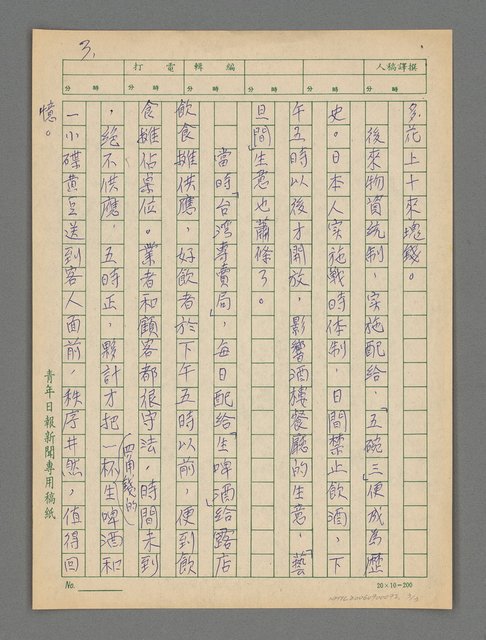 3.
撰譯稿人 編輯 電打
時 分 時 分 時 分 時 分 時 分
多花上十來塊錢。
後來物資統制，实施配給，「五碗三」便成為歷
史。日本人实施戰時体制，日間禁止飲酒，下
午五時以後才開放，影響酒樓餐廳的生意，「藝
旦間」生意也蕭條了。
當時「台湾專賣局」，每日配給「生啤酒」給露店
飲食攤供應，好飲者於下午五時以前，便到飲
食攤佔桌位。業者和顧客都很守法，時間未到
，絕不供應，五時正，夥計才把一杯（四角錢的）生啤酒和
一小碟黃豆送到客人面前，秩序井然，值得回
憶。
青年日報新聞專用稿紙
No.
20×10=200